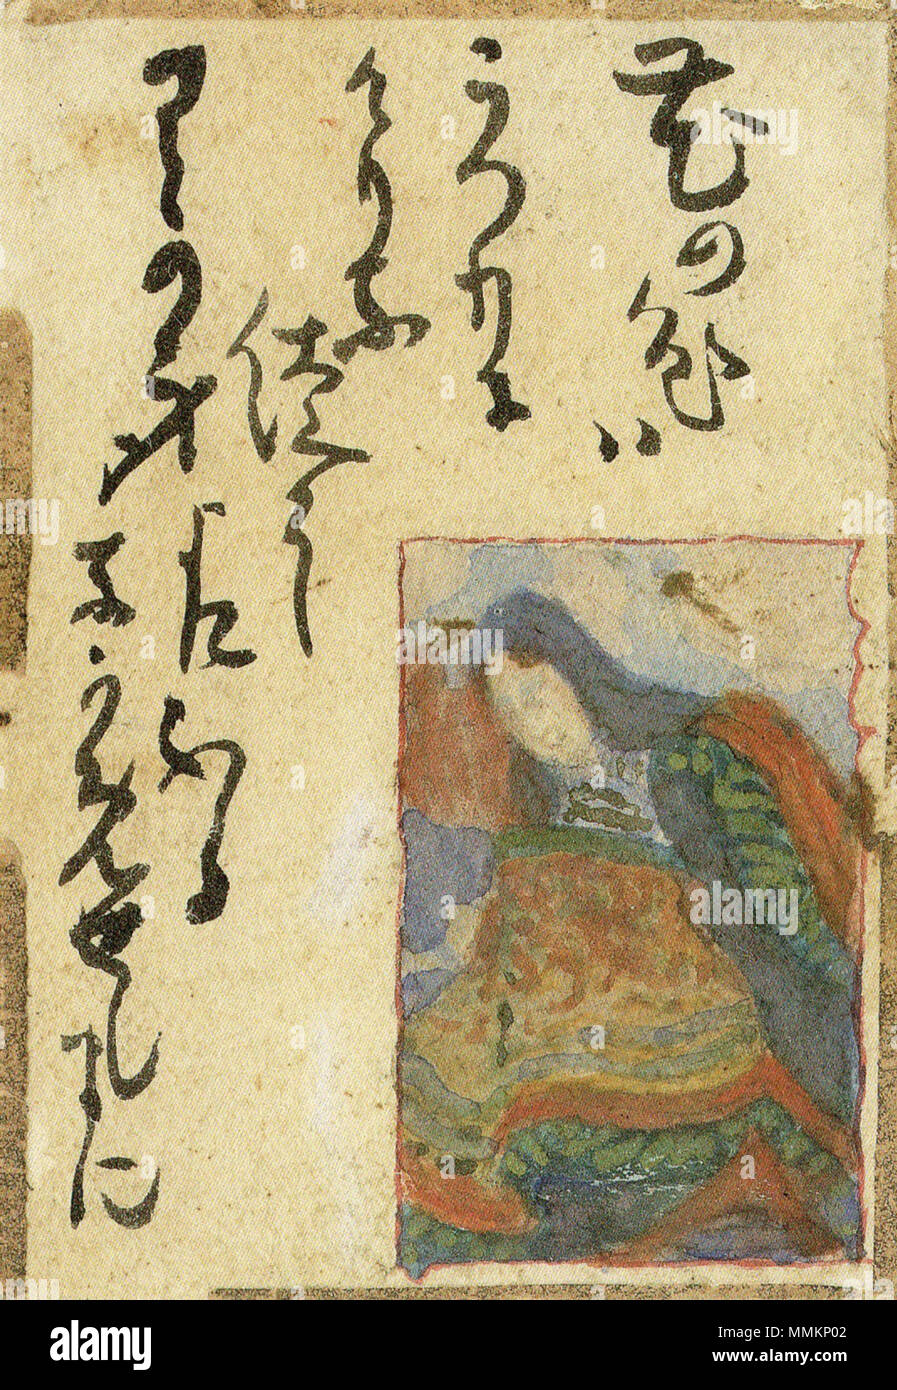 花の色ハ
うつりに
けりな
徒らに
わか身
よにふる
なかめせしまに
alamy
Image ID: MMKP02
www.alamy.com